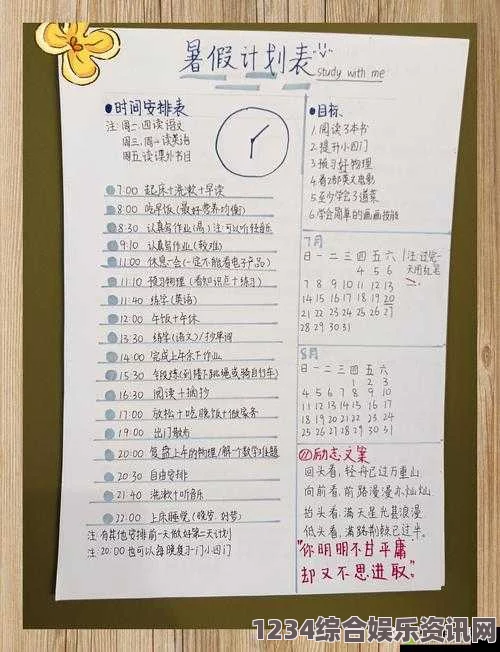 暑假计划表
study with me
●时间安排表
注:周一、四读语文
周三、周一读英语
周五读课外书目
7:00 起床+洗漱+早读
8:00 吃早饭(最好营养均衡)
8:30 认真写作业(高)注:可以听轻音乐
9:10 认真写作业(较难)
11:00 休息一会(一定不能看电子产品)
11:10 预习物理(看知识点+练习)
11:40 练字(英语)
12:00 午饭+午休
13:30 练字(语文)/抄单词
14:00 完成上午余下作业
15:30 锻炼(到楼下跳绳或骑自行车)
16:30 阅读+摘抄
17:00 放松+吃晚饭+做家务
19:00 出门散布
20:00 复盘上午的物理/解一个数学难题
20:30 自由安排
21:40 洗漱+听音乐
22:00 上床睡觉(晚安,好梦)
注:有其他安排前一天做好第二天计划
注:20:00也可以每晚复习一门小四门
●目标
1.阅读3本书
2.提升小四门
3.预习好物理
4.看2部英文电影
5.至少学会3道菜
6.学会简单的画画技能
7月
日一二三四五六
4 5 6
7 8 9 10 11 12 13
14 15 16 17 18 19 20
21 22 23 24 25 26 27
28 29 30 31
注:过完一
天用红笔
8月
日一二三四五六
1 2 3
4 5 6 7 8 9 10
11 12 13 14 15 16 17
18 19 20 21 22 23 24
25 26 27 28 29 30 31
励志文案
回头看,轻舟已过万重山
向前看,前路漫漫亦灿灿
抬头看,满天星光甚浪漫
低头看,满路荆棘已过半。
"你明明不甘平庸
却又不思进取"
1234综合娱乐资讯网